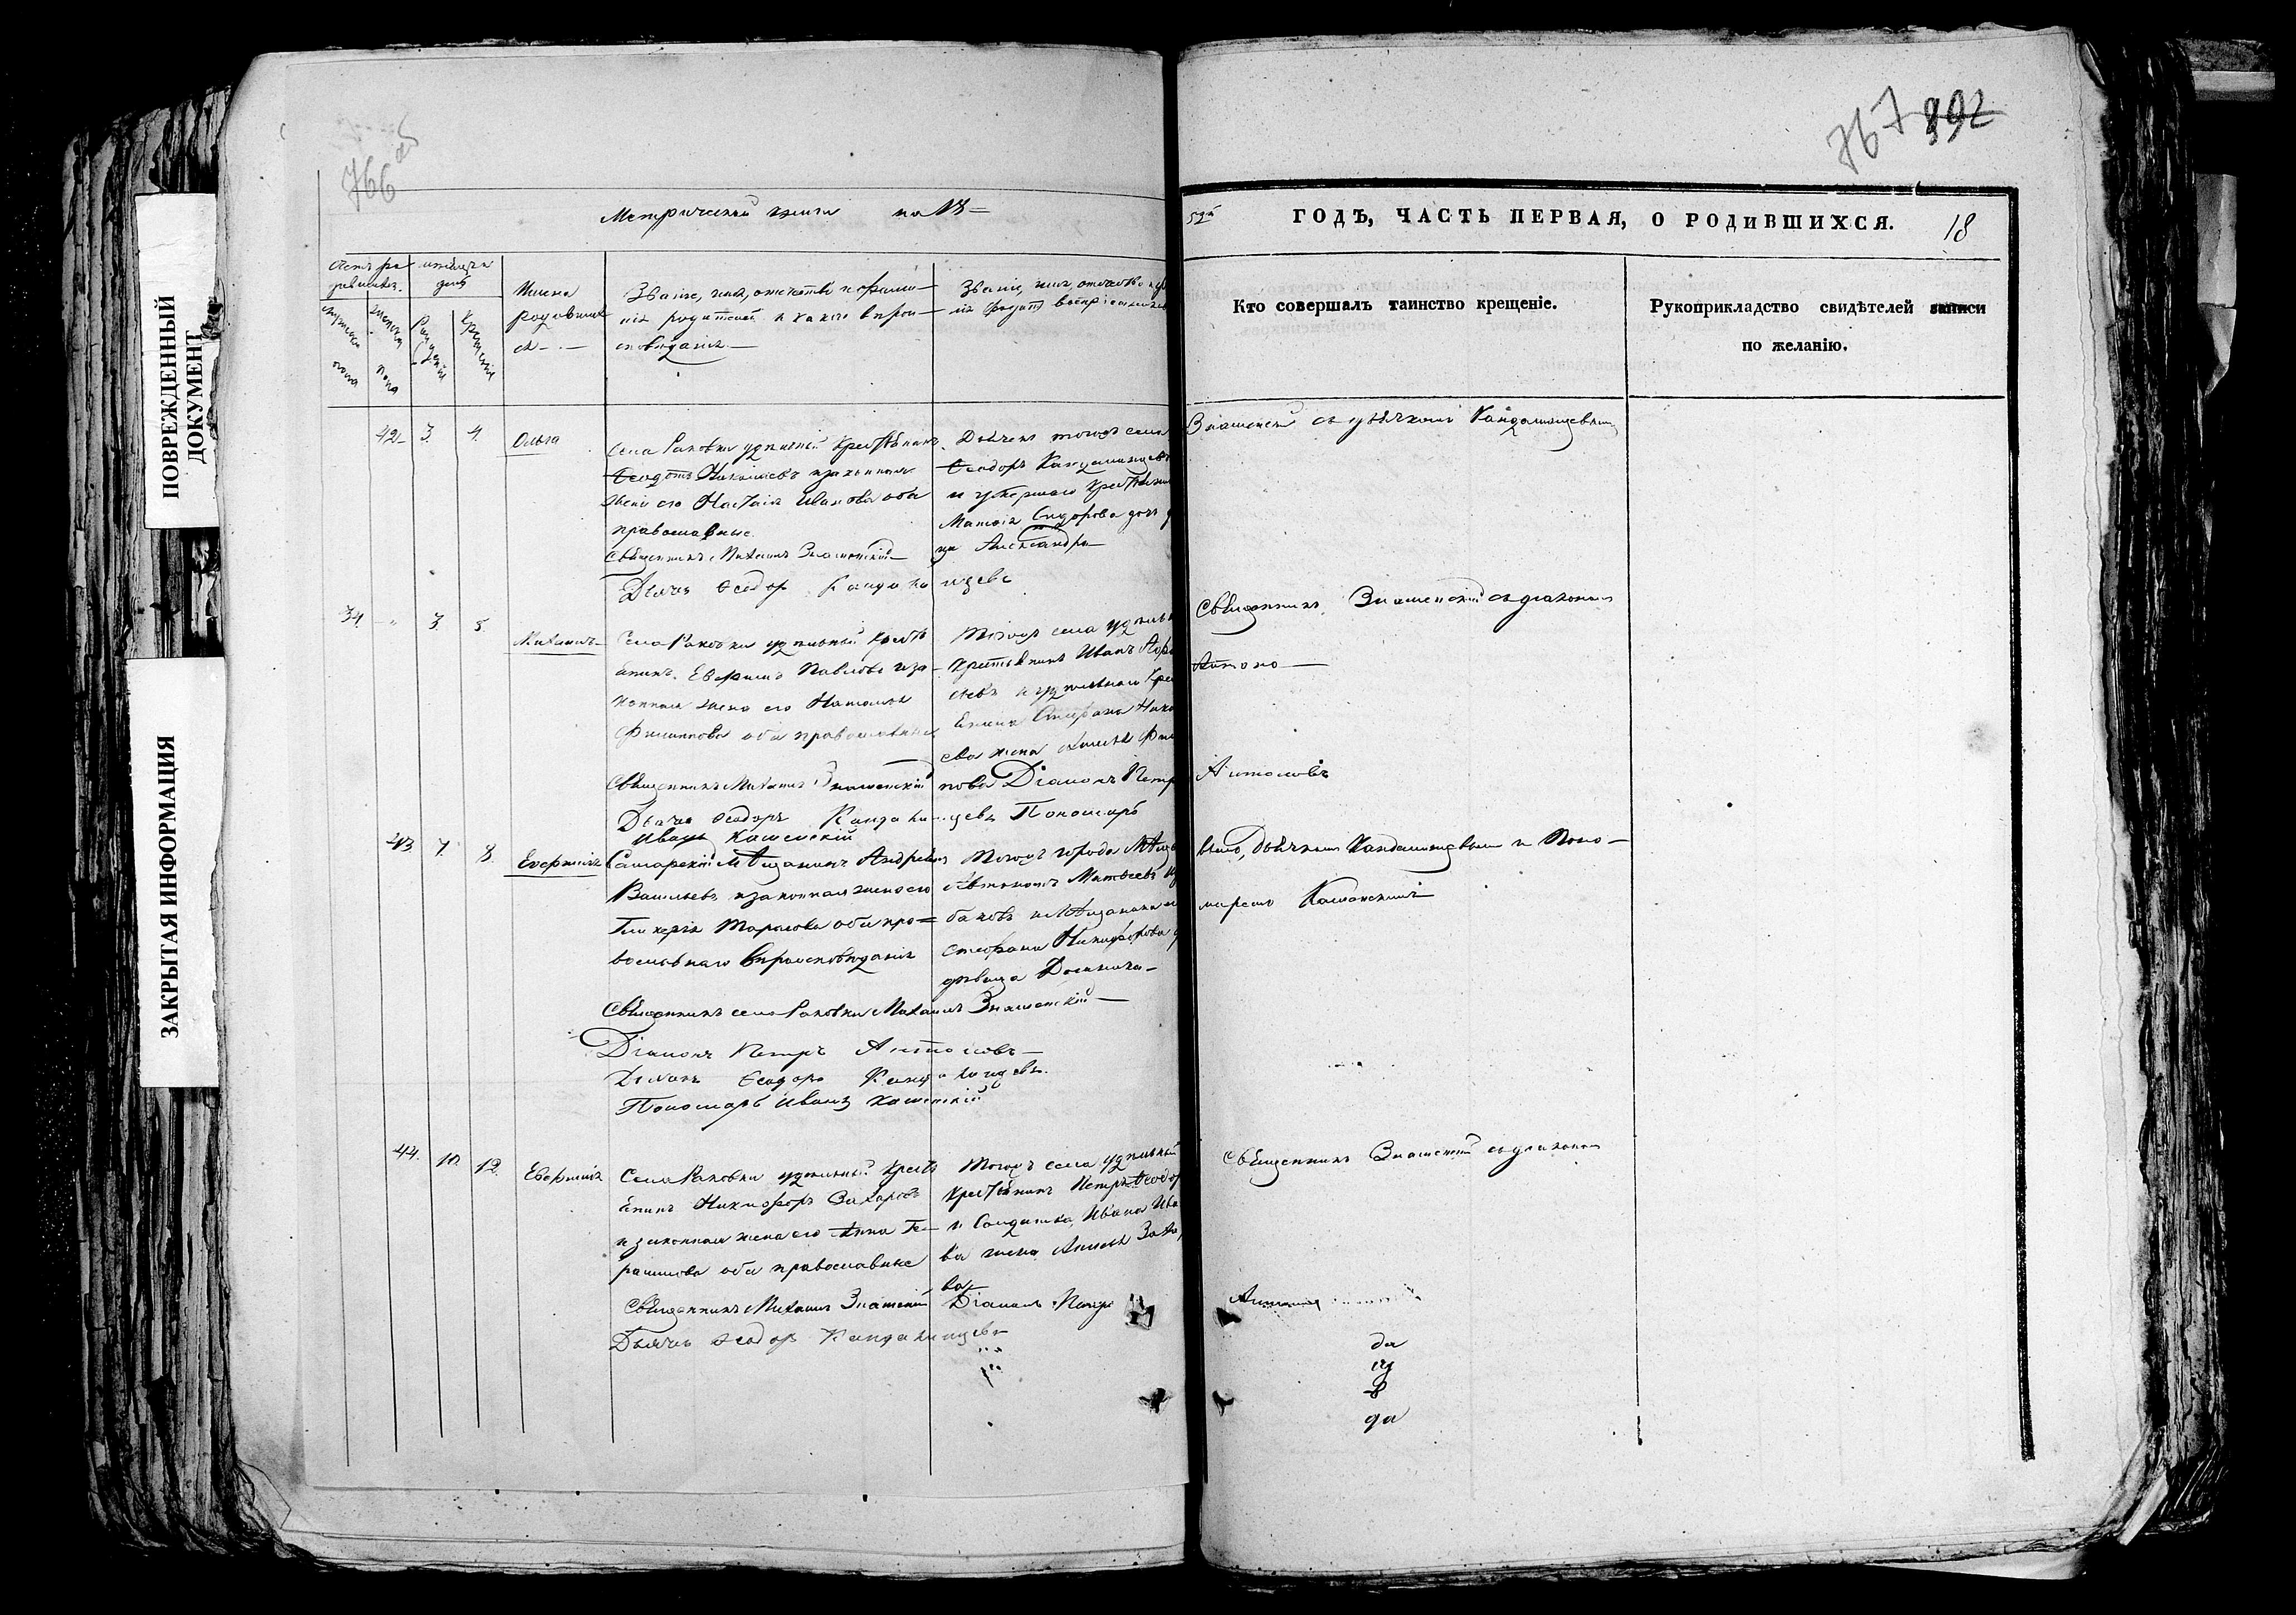 766 об
767 892
Метрической книги на 18—
52й ГОДЪ, ЧАСТЬ ПЕРВАЯ, О РОДИВШИХСЯ. 18
мужеска пола
женска пола
Рожденія
Крещенія
Имена
родившихся
Званіе, имя, отчество и фами—
лія родителей и какого вѣрои—
споведанія
Званіе, имя, отчество и фами
Кто совершалъ таинство крещеніе.
Рукоприкладство свидѣтелей записи
по желанію.
42 3. 4. Ольга
Села Раковки удѣльный крестьянинъ
Ѳеодотъ Николаевъ и законная
жена его Настасія Иванова оба
православные.
Священникъ Михаилъ Знаменскій
Дьячекъ Ѳеодоръ Кандалинцевъ
Дьячекъ тогожъ села
Ѳеодоръ Кандалинцевъ
и умершаго крестьянина
Матвея Сидорова дочь
ца Александра
Знаменскій съ дьячкомъ Кандалинцевымъ
34. " 3. 5. Михаилъ
Села Раковки удѣльный кресть
янинъ Евфимъ Павловъ и за—
конная жена его Наталья
Филиппова оба православные
Священникъ Михаилъ Знаменскій
Дьячекъ Ѳеодоръ Кандалинцевъ Пономарь
Иванъ Каменскій
Тогожъ села удѣльн
крестьянинъ Иванъ
и удѣльнаго кре
Стефана Нико
ева жена Фили
пова Діаконъ Петр
Священникъ Знаменскій съ діакономъ
Антоно—
Антоновъ
43 7. 8. Евфимія
Самарскій Мѣщанинъ Андрей
Васильевъ и законная жена его
Гликерія Тарасова оба пра=
вославнаго вѣроисповѣданія
Священникъ села Раковки Михаилъ Знаменскій—
Діаконъ Петръ Антоновъ—
Дьячекъ Ѳеодоръ Кандалинцевъ.
Пономарь Иванъ Каменскій
Тогожъ города Мѣщ
Матвеевъ
Стефана Никифорова
дѣвица
вымъ, дьячкомъ Кандалинцевымъ и Поно—
маремъ Каменскимъ
44. 10. 12. Евфимія
Села Раковки удѣльный кресть
янинъ Никифоръ Захаровъ
и законная жена его Анна Ге—
расимова оба православные
Священникъ Михаилъ Знаменскій
Дьячекъ Ѳеодоръ Кандалинцевъ
Тогожъ села удѣльный
крестьянинъ Петръ Ѳеодор
и Солдатка, Ивана Ива
ва жена Заха
ва—
Діаконъ Петръ
Священникъ Знаменскій съ діакономъ
да
да
ПОВРЕЖДЕННЫЙ
ДОКУМЕНТ
ЗАКРЫТАЯ ИНФОРМАЦИЯ